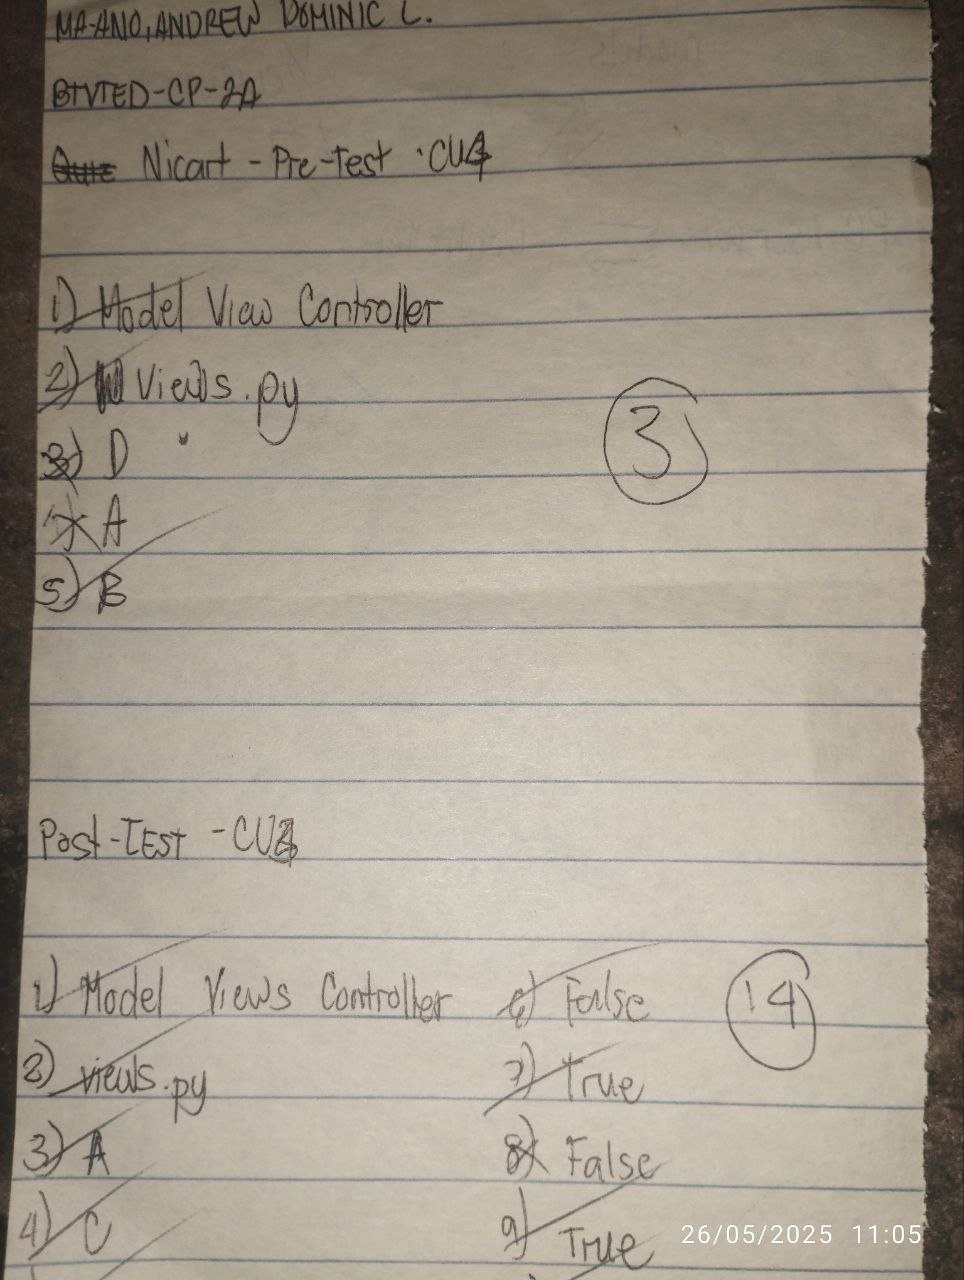 MA-ANO, ANDREW DOMINIC L.
BTVTED-CP-2A
Nicart - Pre-Test · CU4
1) Model View Controller
2) Views.py
3) D
3
4) A
5) B
Post-TEST - CU4
1) Model Views Controller
6) False
14
2) views.py
7) True
3) A
8) False
4) C
9) True
26/05/2025 11:05